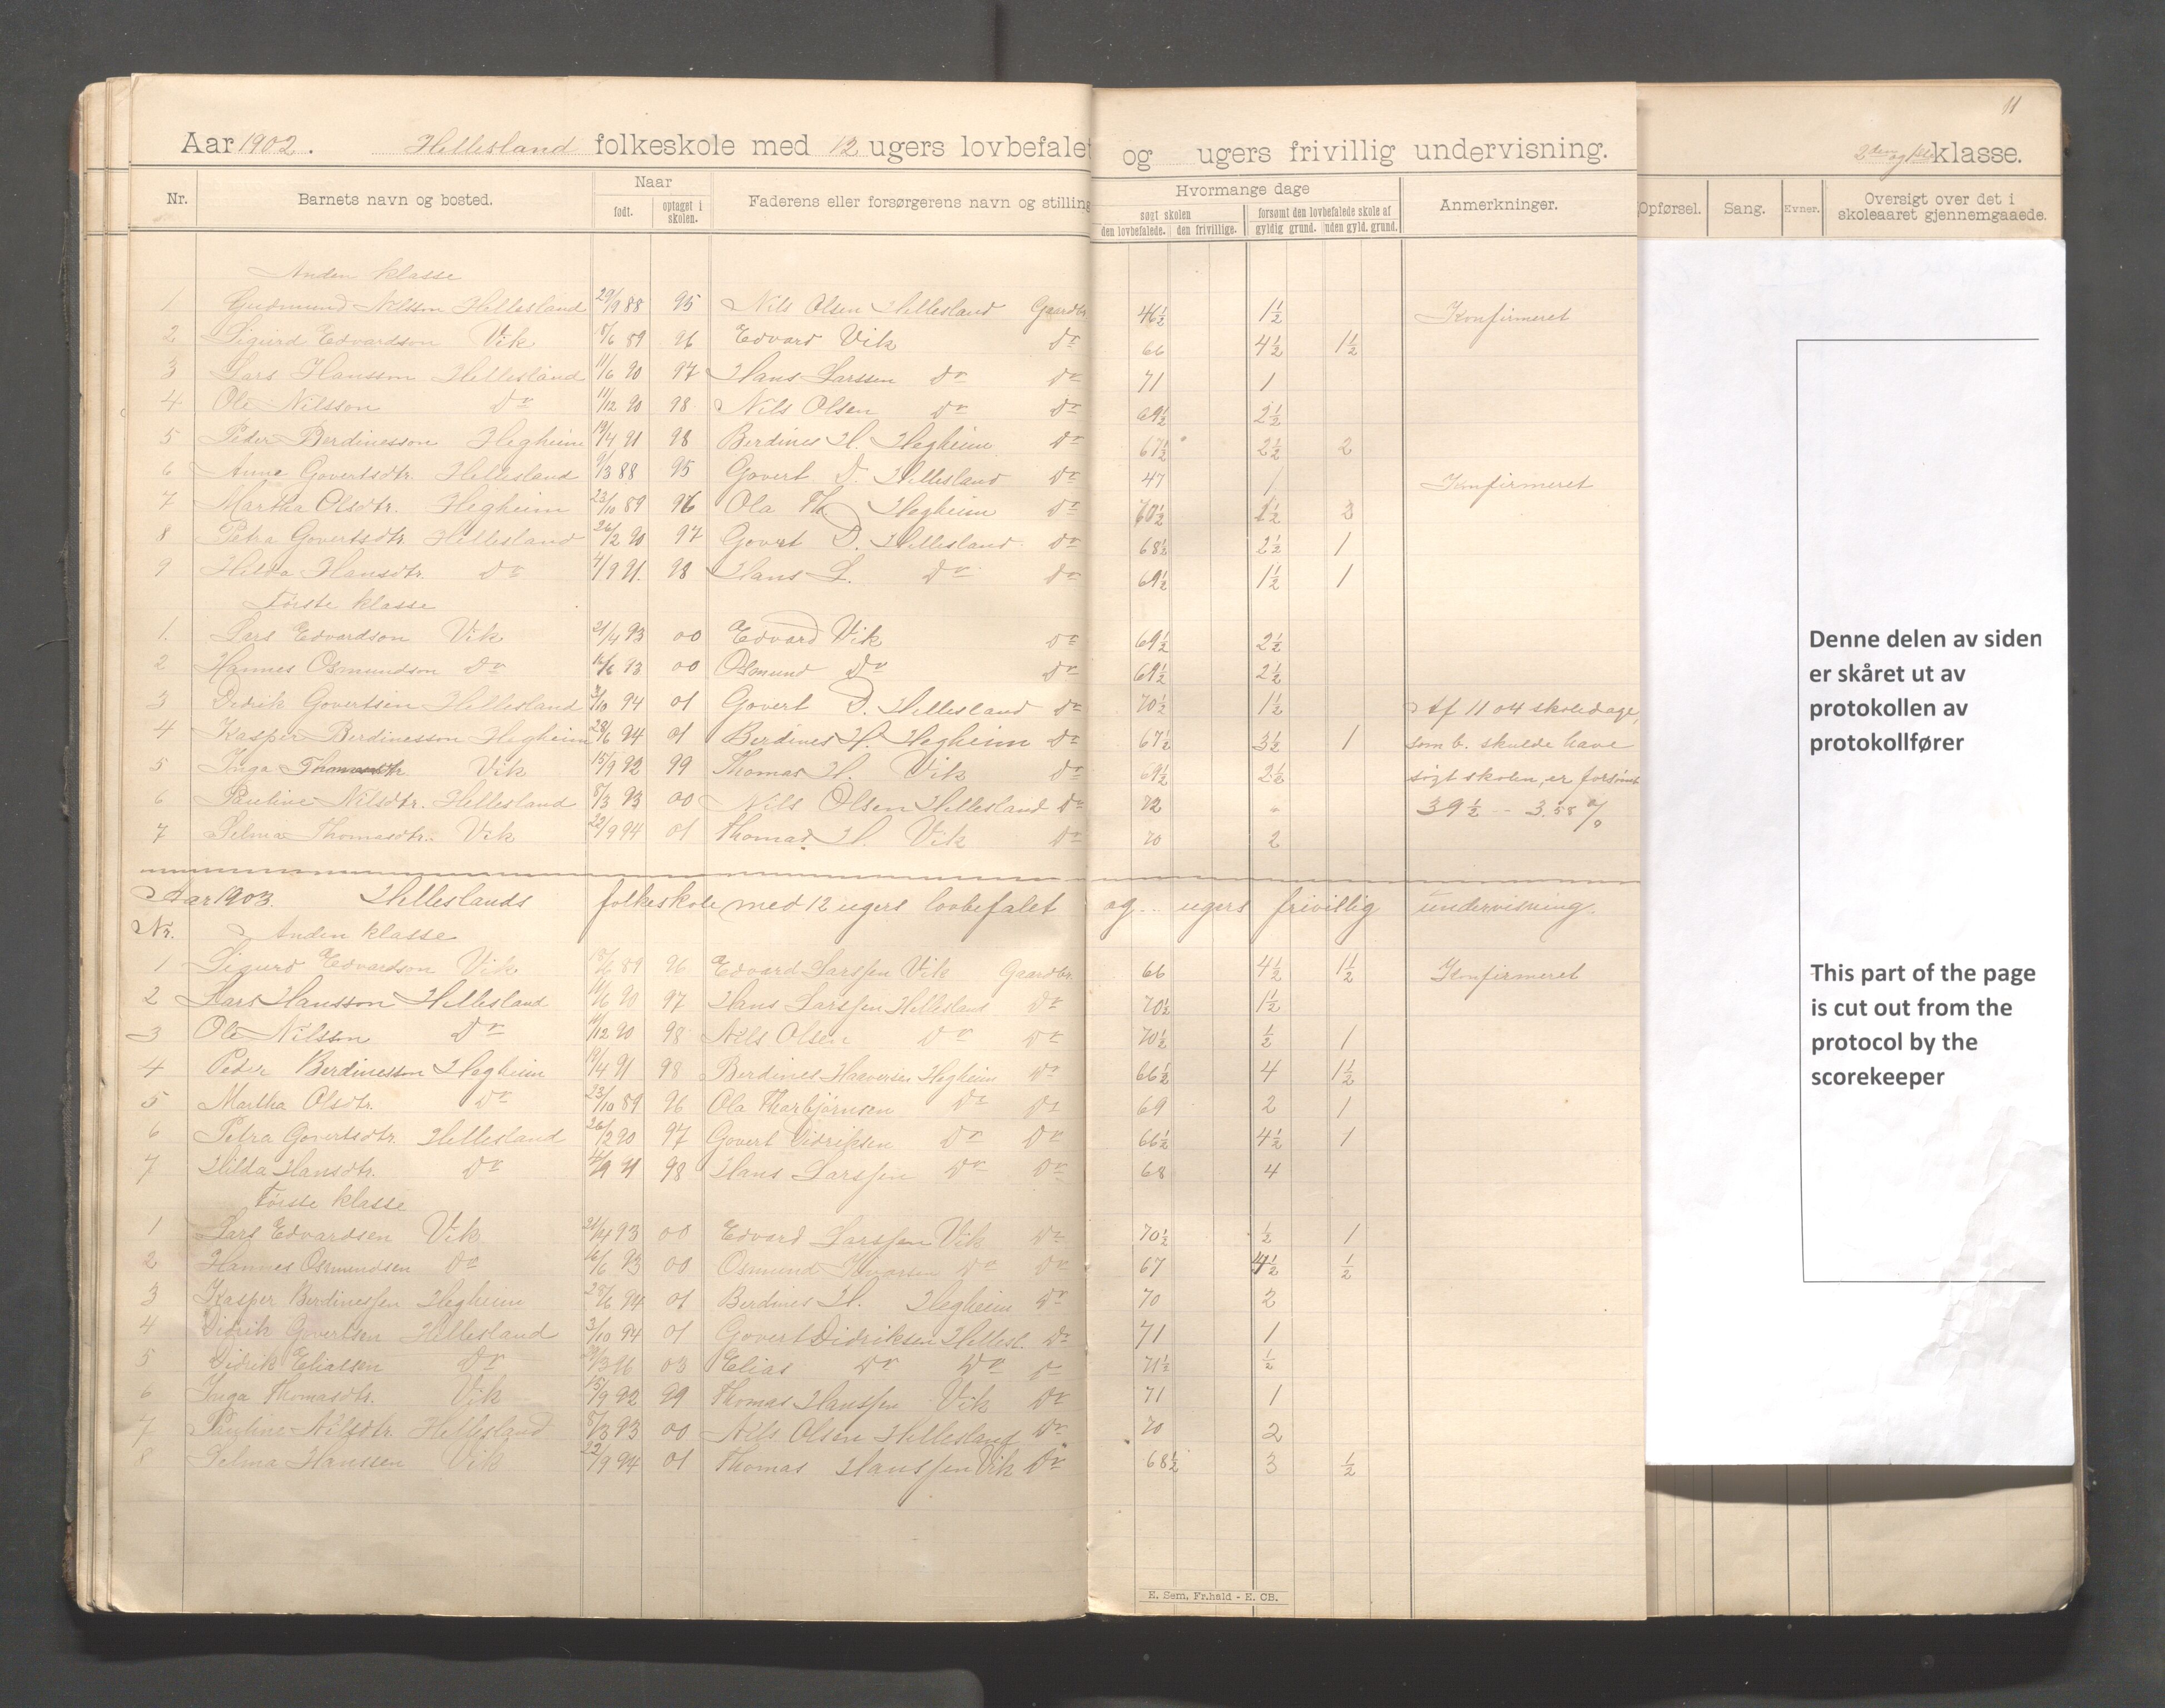 11
Aar 1902. Hellesland folkeskole med 12 ugers lovbefalet og ugers frivillig undervisning. 2den og 1ste klasse.
Nr. Barnets navn og bosted. Naar født. optaget i skolen. Faderens eller forsørgerens navn og stilling Hvormange dage søgt skolen den lovbefalede. den frivillige. forsømt den lovbefalede skole af gyldig grund. uden gyld. grund. Anmerkninger. Opførsel. Sang. Evner. Oversigt over det i skoleaaret gjennemgaaede.
Anden klasse
1 Gudmund Nilsson Hellesland 29/9 88 95 Nils Olsen Hellesland Gaardbr. 46½ 1½ Konfirmeret
2 Sigurd Edvardson Vik 8/6 89 96 Edvard Vik Do 66 4½ 1½
3 Lars Hansson Hellesland 11/6 90 97 Hans Larssen Do Do 71 1
4 Ole Nilsson Do 11/12 90 98 Nils Olsen Do Do 69½ 2½
5 Peder Berdinesson Hegheim 19/4 91 98 Berdines H. Hegheim Do 67½ 2½ 2
6 Anne Govertsdtr. Hellesland 9/3 88 95 Govert D. Hellesland Do 47 1 Konfirmeret
7 Martha Olsdtr. Hegheim 23/10 89 96 Ola Th. Hegheim Do 70½ 1½ 2
8 Petra Govertsdtr. Hellesland 26/2 90 97 Govert D. Hellesland Do 68½ 2½ 1
9 Hilda Hansdtr. Do 4/9 91. 98 Hans L. Do Do 69½ 1½ 1
Første klasse
1. Lars Edvardson Vik 21/4 93 00 Edvard Vik Do 69½ 2½
2 Hannes Osmundson Do 16/6 93 00 Osmund Do Do 69½ 2½
3 Didrik Govertsen Hellesland 3/10 94 01 Govert D. Hellesland Do 70½ 1½ Af 1104 skoledage,
4 Kasper Berdinesson Hegheim 28/6 94 01 Berdines H. Hegheim Do 67½ 3½ 1 som b. skulde have
5 Inga Thomasdtr. Vik 15/9 92 99 Thomas H. Vik Do 69½ 2½ søgt skolen, er forsømt
6 Pauline Nilsdtr. Hellesland 8/3 93 00 Nils Olsen Hellesland Do 72 " 39½ - 3.58 %
7 Selma Thomasdtr. Vik 22/9 94 01 Thomas H. Vik Do 70 2
Aar 1903. Helleslands folkeskole med 12 ugers lovbefalet og .. ugers frivillig undervisning.
Nr. Anden klasse
1 Sigurd Edvardson Vik 18/6 89 96 Edvard Larssen Vik Gaardbr. 66 4½ 1½ Konfirmeret
2 Lars Hansson Hellesland 11/6 90 97 Hans Larssen Hellesland Do 70½ 1½
3 Ole Nilsson Do 11/12 90 98 Nils Olsen Do Do 70½ ½ 1
4 Peder Berdinesson Hegheim 19/4 91 98 Berdines Haaversen Hegheim Do 66½ 4 1½
5 Martha Olsdtr. Do 23/10 89 96 Ola Thorbjørnsen Do Do 69 2 1
6 Petra Govertsdtr. Hellesland 26/2 90 97 Govert Didriksen Do Do 66½ 4½ 1
7 Hilda Hansdtr. Do 4/9 91 98 Hans Larssen Do Do 68 4
Første klasse
1 Lars Edvardsen Vik 21/4 93 00 Edvard Larssen Vik Do 70½ ½ 1
2 Hannes Osmundsen Do 16/6 93 00 Osmund Do Do 67 4½ ½
3 Kasper Berdinessen Hegheim 28/6 94 01 Berdines H. Hegheim Do 70 2
4 Didrik Govertsen Hellesland 3/10 94 01 Govert Didriksen Hellesl. Do 71 1
5 Didrik Eliassen Do 29/3 96 03 Elias Do Do Do 71½ ½
6 Inga Thomasdtr. Vik 15/9 92 99 Thomas Hanssen Vik Do 71 1
7 Pauline Nilsdtr. Hellesland 8/3 93 00 Nils Olsen Hellesland Do 70 2
8 Selma Hanssen Vik 22/9 94 01 Thomas Hanssen Vik Do 68½ 3 ½
E. Sem, Fr.hald - E. CB.
Denne delen av siden
er skåret ut av
protokollen av
protokollfører
This part of the page
is cut out from the
protocol by the
scorekeeper